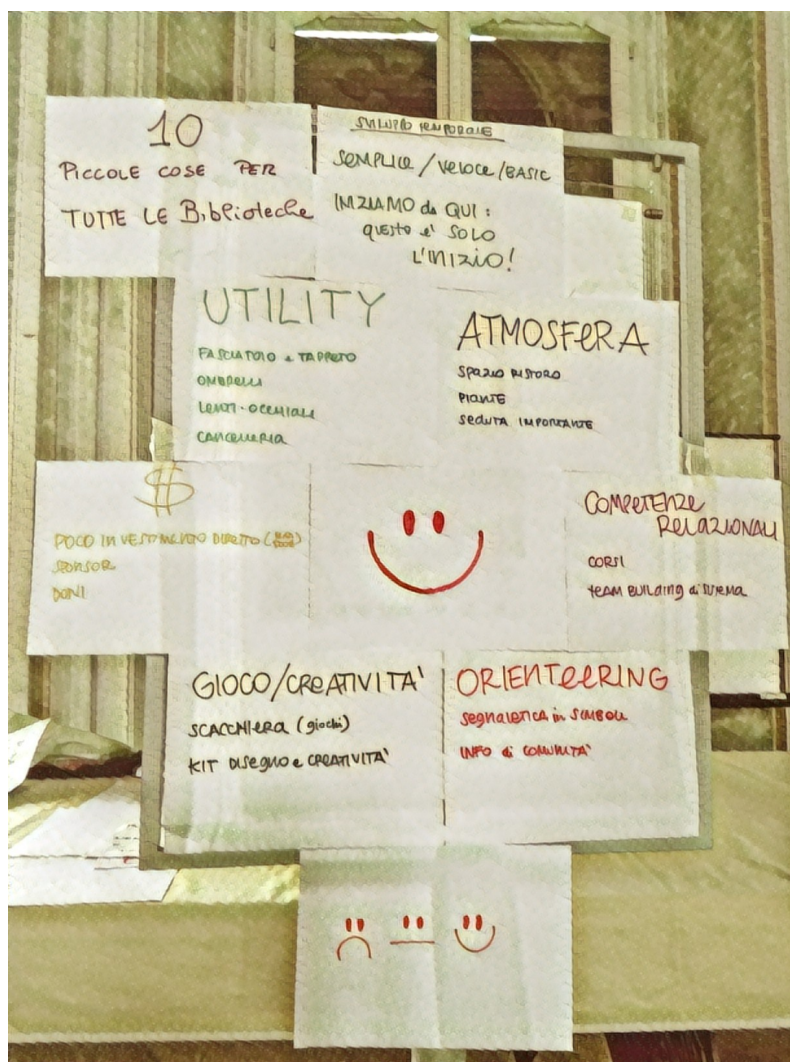 10
PICCOLE COSE PER
TUTTE LE Biblioteche
SVILUPPO TEMPORALE
SEMPLICE/VELOCE/BASIC
INIZIAMO da QUI:
QUESTO e' SOLO
L'INIZIO!
UTILITY
FASCIATOIO e TAPPETO
OMBRELLI
LENTI-OCCHIALI
CANCELLERIA
ATMOSFERA
SPAZIO RISTORO
PIANTE
SEDUTA IMPORTANTE
$
POCO INVESTIMENTO DIRETTO (
SPONSOR
DONI
COMPETENZE
RELAZIONALI
CORSI
TEAM BUILDING di SISTEMA
GIOCO/CREATIVITA'
SCACCHIERA (giochi)
KIT DISEGNO e CREATIVITA'
ORIENTEERING
SEGNALETICA in SIMBOLI
INFO di COMUNITA'